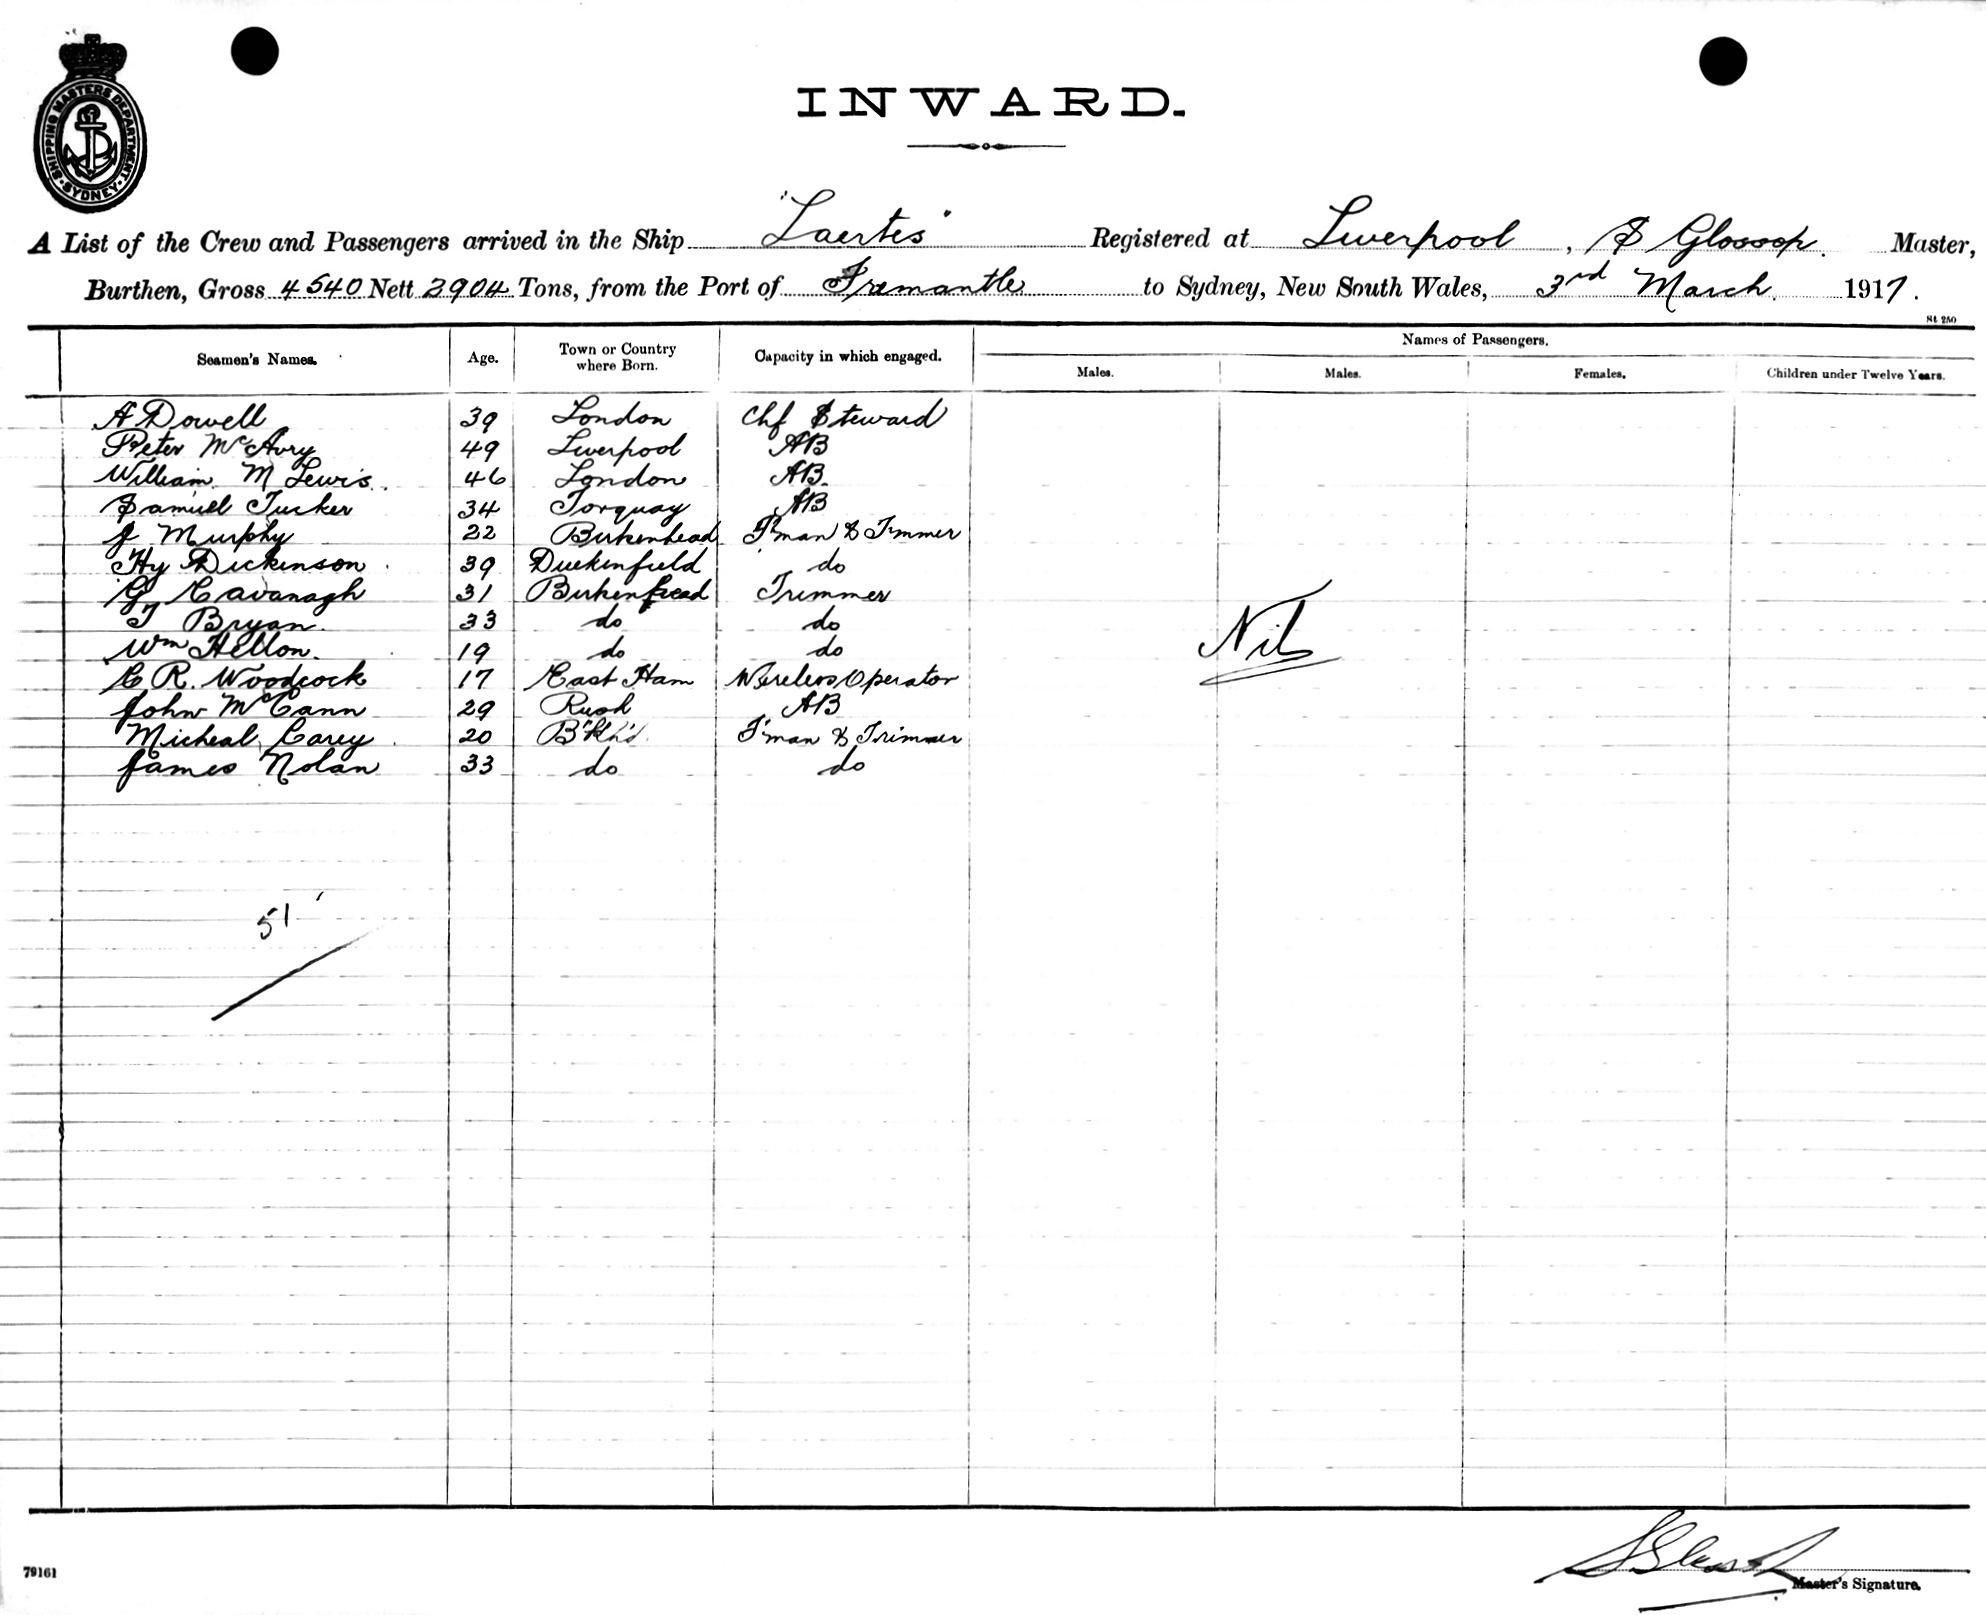 SHIPPING MASTERS DEPARTMENT
SYDNEY
INWARD.
A List of the Crew and Passengers arrived in the Ship "Laertes" Registered at Liverpool, S Glossop. Master,
Burthen, Gross 4540 Nett 2904 Tons, from the Port of Fremantle to Sydney, New South Wales, 3rd March 1917.
St 250
Seamen's Names. Age. Town or Country where Born. Capacity in which engaged. Names of Passengers.
Males. Males. Females. Children under Twelve Years.
A Dowell 39 London Chf Steward
Peter McAvry 49 Liverpool AB
William M Lewis 46 London AB
Samuel Tucker 34 Torquay AB
J Murphy 22 Birkenhead F'man & Timmer
Hy Dickinson 39 Duckinfield do
Gy Cavanagh 31 Birkenhead Trimmer
T Bryan 33 do do
Nil
Wm Hellon 19 do do
C R. Woodcock 17 East Ham Wireless Operator
John McCann 29 Rush AB
Micheal Carey 20 B'kh'd F'man & Trimmer
James Nolan 33 do do
51
79161
Master's Signature.